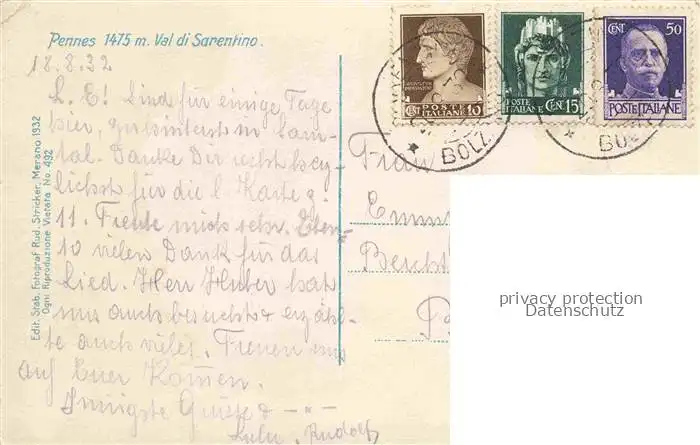 Pennes 1475 m. Val di Sarentino.
18.8.32
L. E! Sind für einige Tage
hier, zuhinterst in Sarn-
tal. Danke Dir recht herz-
lichst für die l. Karte z.
11. Freute mich sehr. Eben-
so vielen Dank für das
Lied. Herr Huber hat
uns auch besucht & erzähl-
te auch vieles. Freuen uns
auf Euer Kommen.
Innigste Grüsse &
Rudolf
Edit. Stab. Fotograf Rud. Stricker, Merano 1932
Ogni Riproduzione Vietata No. 492
POSTE ITALIANE
CENT 10
POSTE ITALIANE
CEN. 15
CENT. 50
POSTE ITALIANE
BOLZ
Frau
privacy protection
Datenschutz